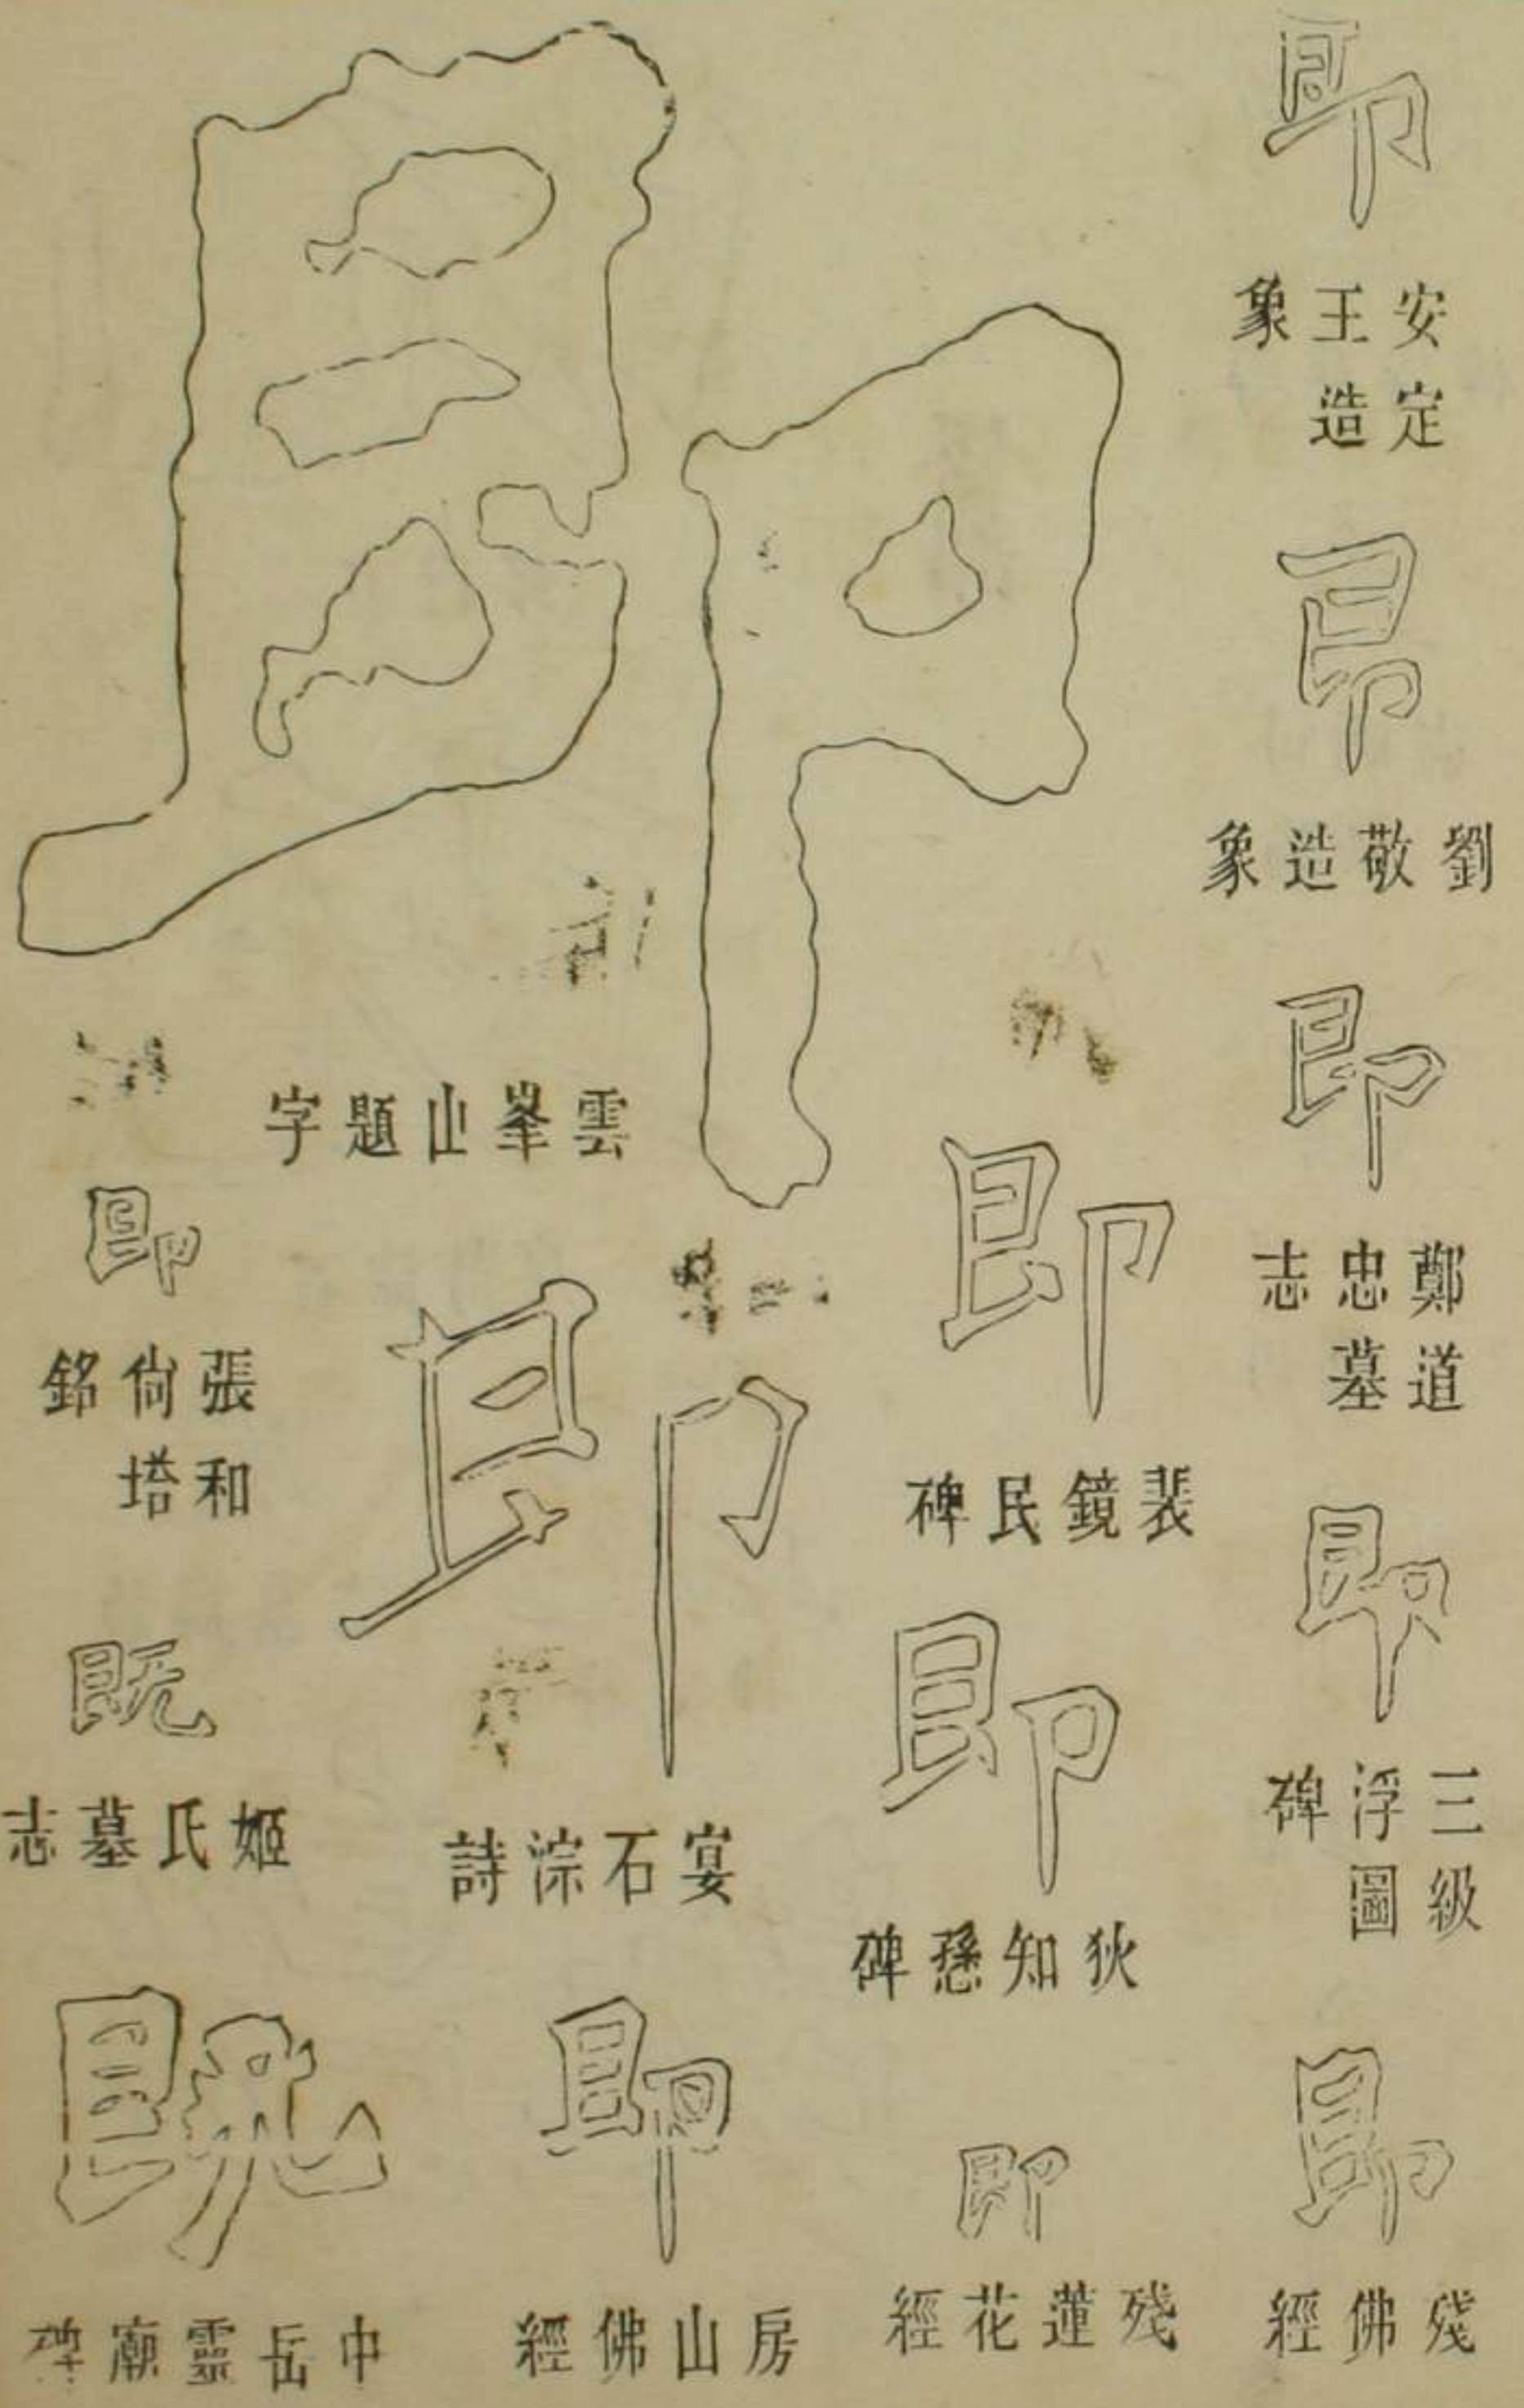 即
安定王造象
即
劉敬造象
即
鄭道忠墓志
即
三級浮圖碑
即
殘佛經
即
裴鏡民碑
即
狄知愻碑
即
殘蓮花經
即
雲峯山題字
即
宴石淙詩
即
房山佛經
即
張和尙塔銘
既
姬氏墓志
既
中岳靈廟碑